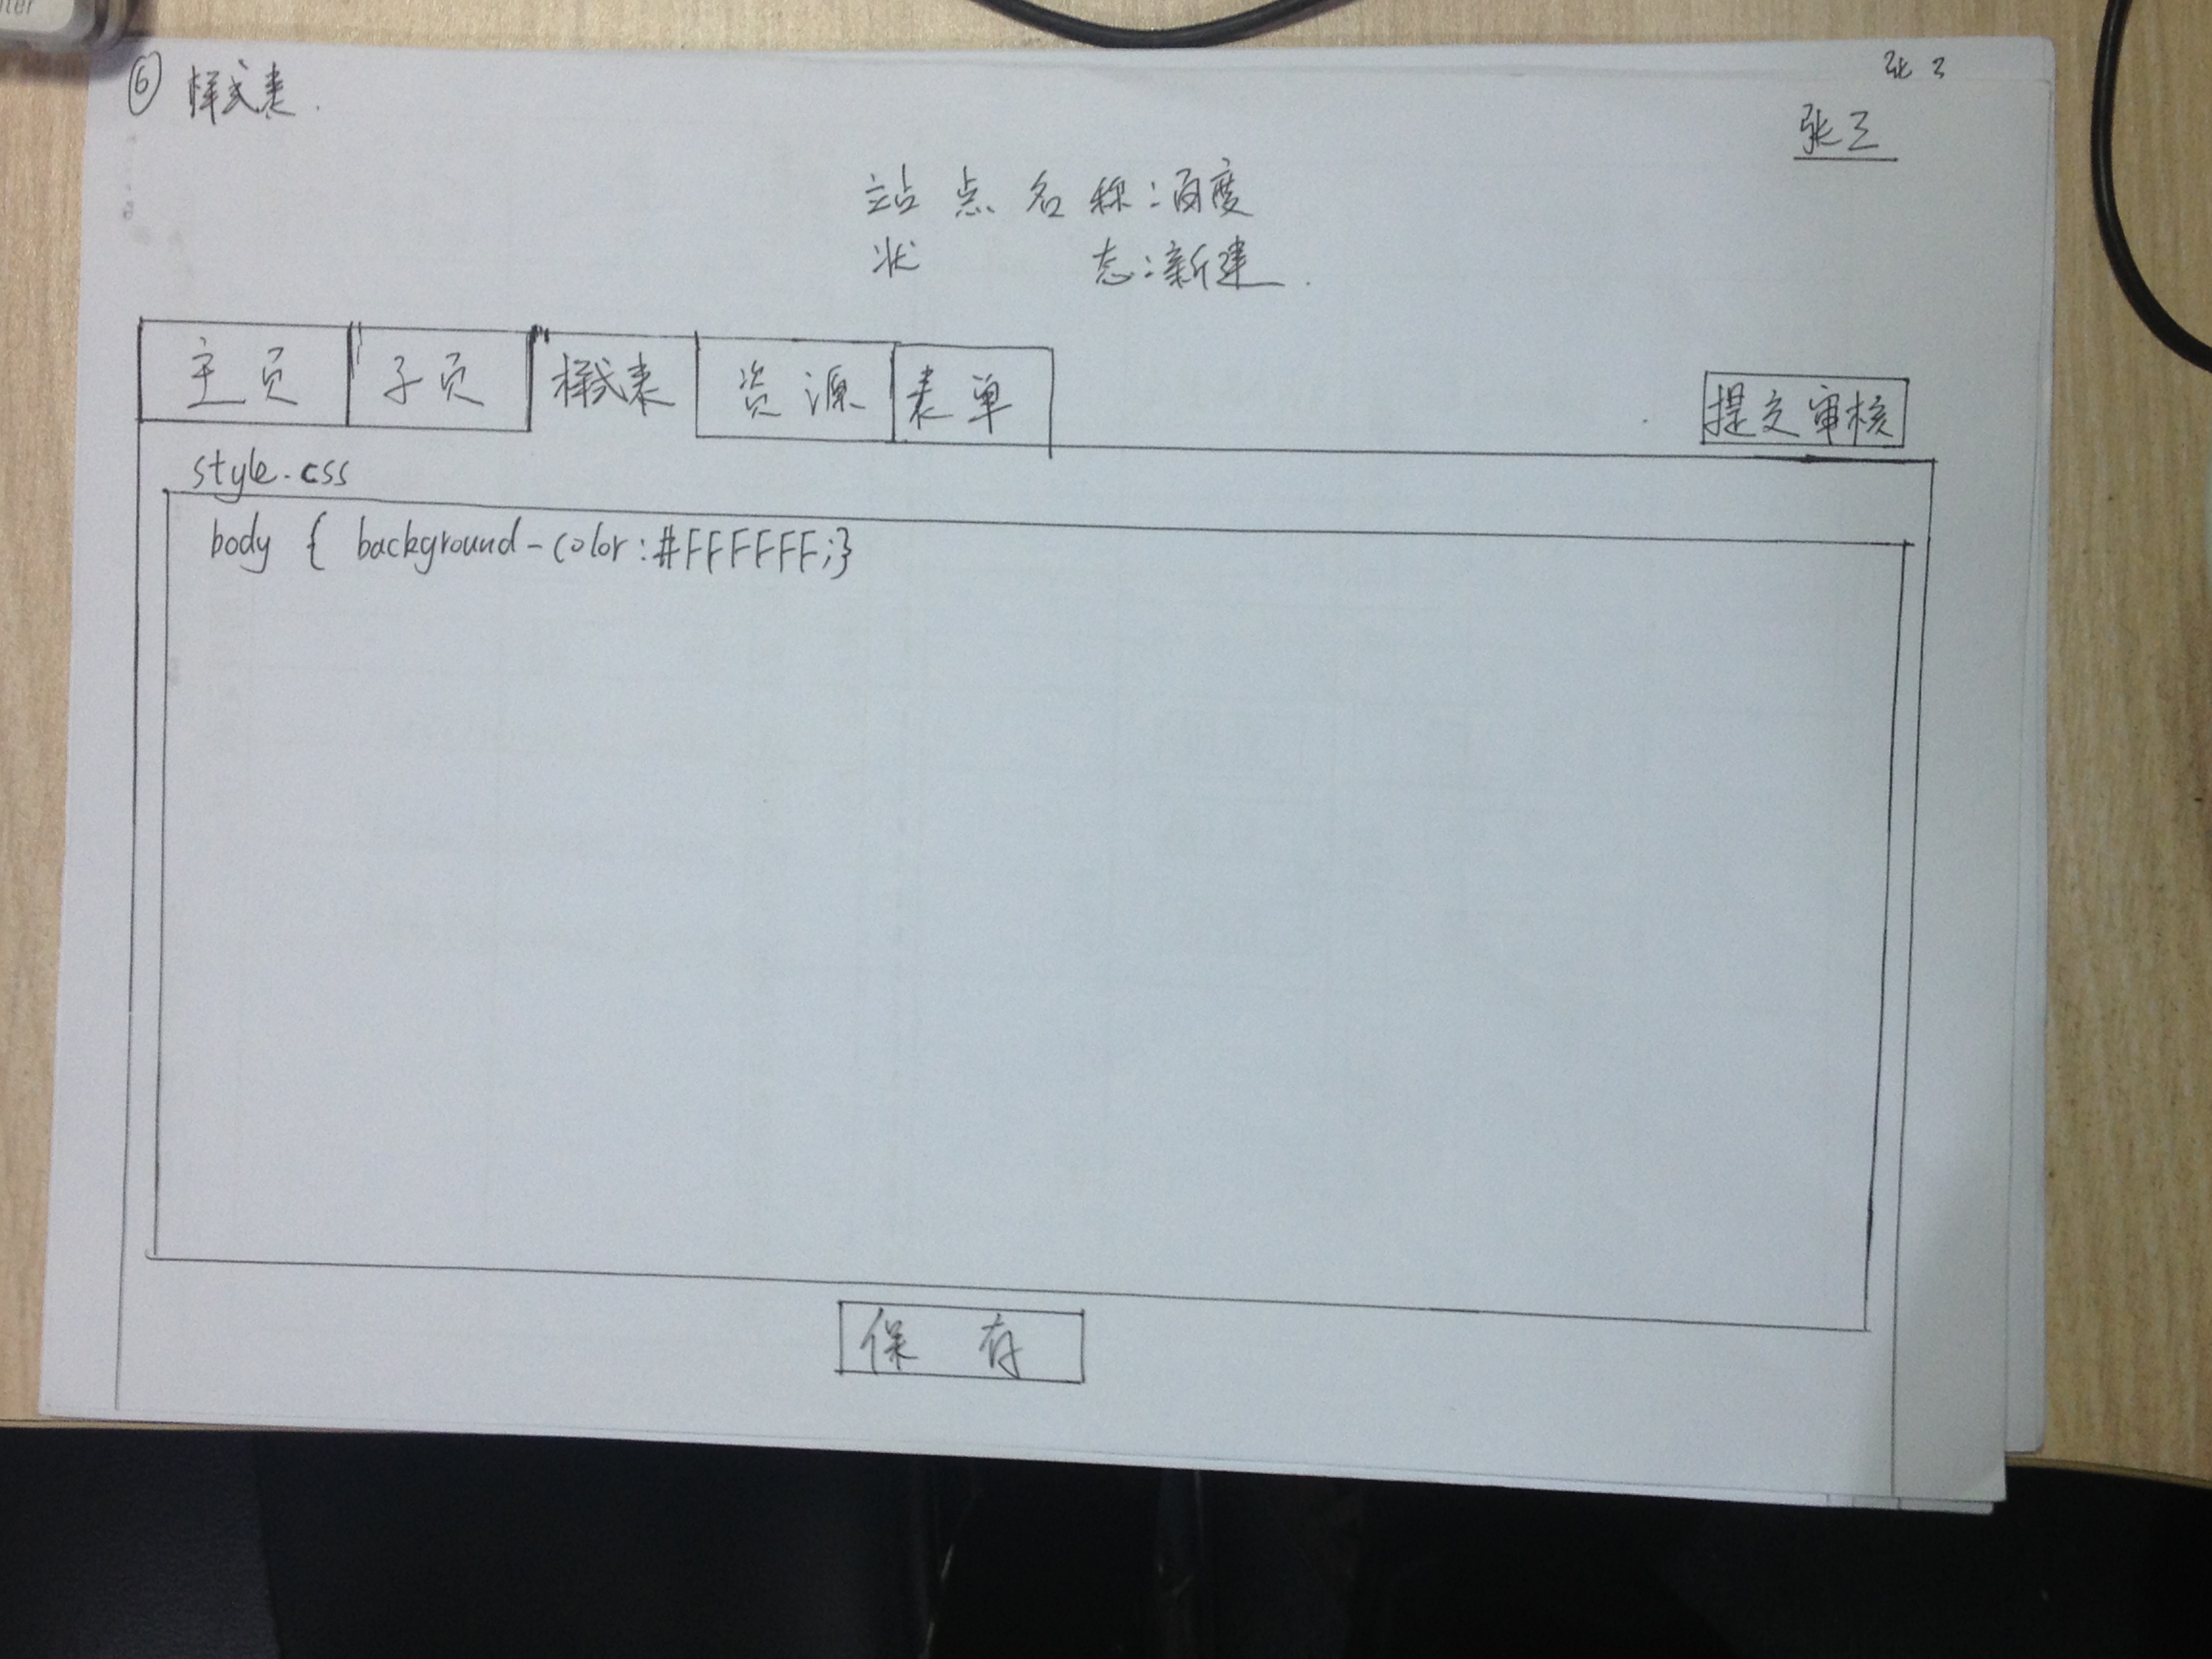 ⑥ 样式表.
张三
张三
站点名称:百度
状态:新建.
主页 子页 样式表 资源 表单
提交审核
style.css
body { background-color:#FFFFFF;}
保存